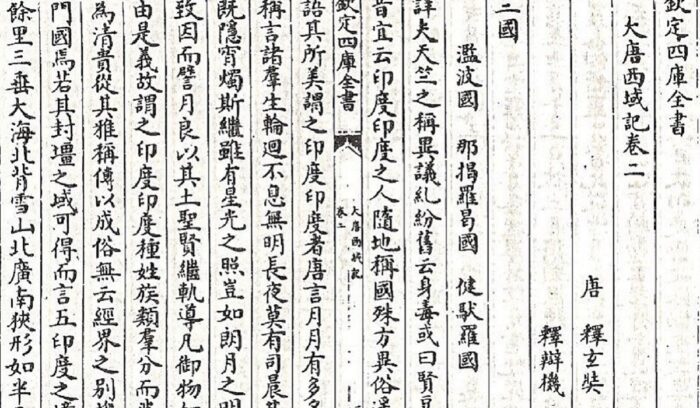 欽定四庫全書
大唐西域記卷二
唐 釋玄奘
釋辯機
三國
濫波國 那揭羅曷國 健馱羅國
詳夫天竺之稱異議糺紛舊云身毒或曰賢豆
音宜云印度印度之人隨地稱國殊方異俗遙
語其所美謂之印度印度者唐言月月有多名
欽定四庫全書
大唐西域記
卷二
稱言諸羣生輪迴不息無明長夜莫有司晨其
既隱宵燭斯繼雖有星光之照豈如朗月之明
致因而譬月良以其土聖賢繼軌導凡御物如
由是義故謂之印度印度種姓族類羣分而
為清貴從其雅稱傳以成俗無云經界之別
門國焉若其封壃之域可得而言五印度之境
餘里三垂大海北背雪山北廣南狹形如半